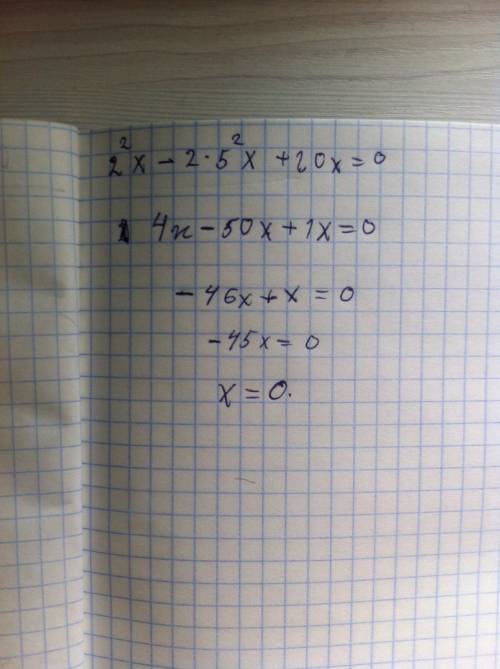 2²x - 2·5²x + 20x = 0
4x - 50x + 1x = 0
- 46x + x = 0
- 45x = 0
x = 0.